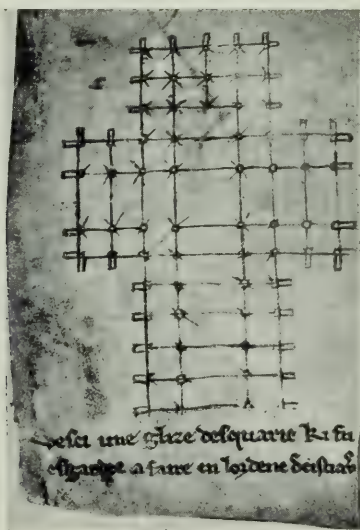 Vesci une glize desquarie ki fu
esgardee a faire en lordene de cistiax